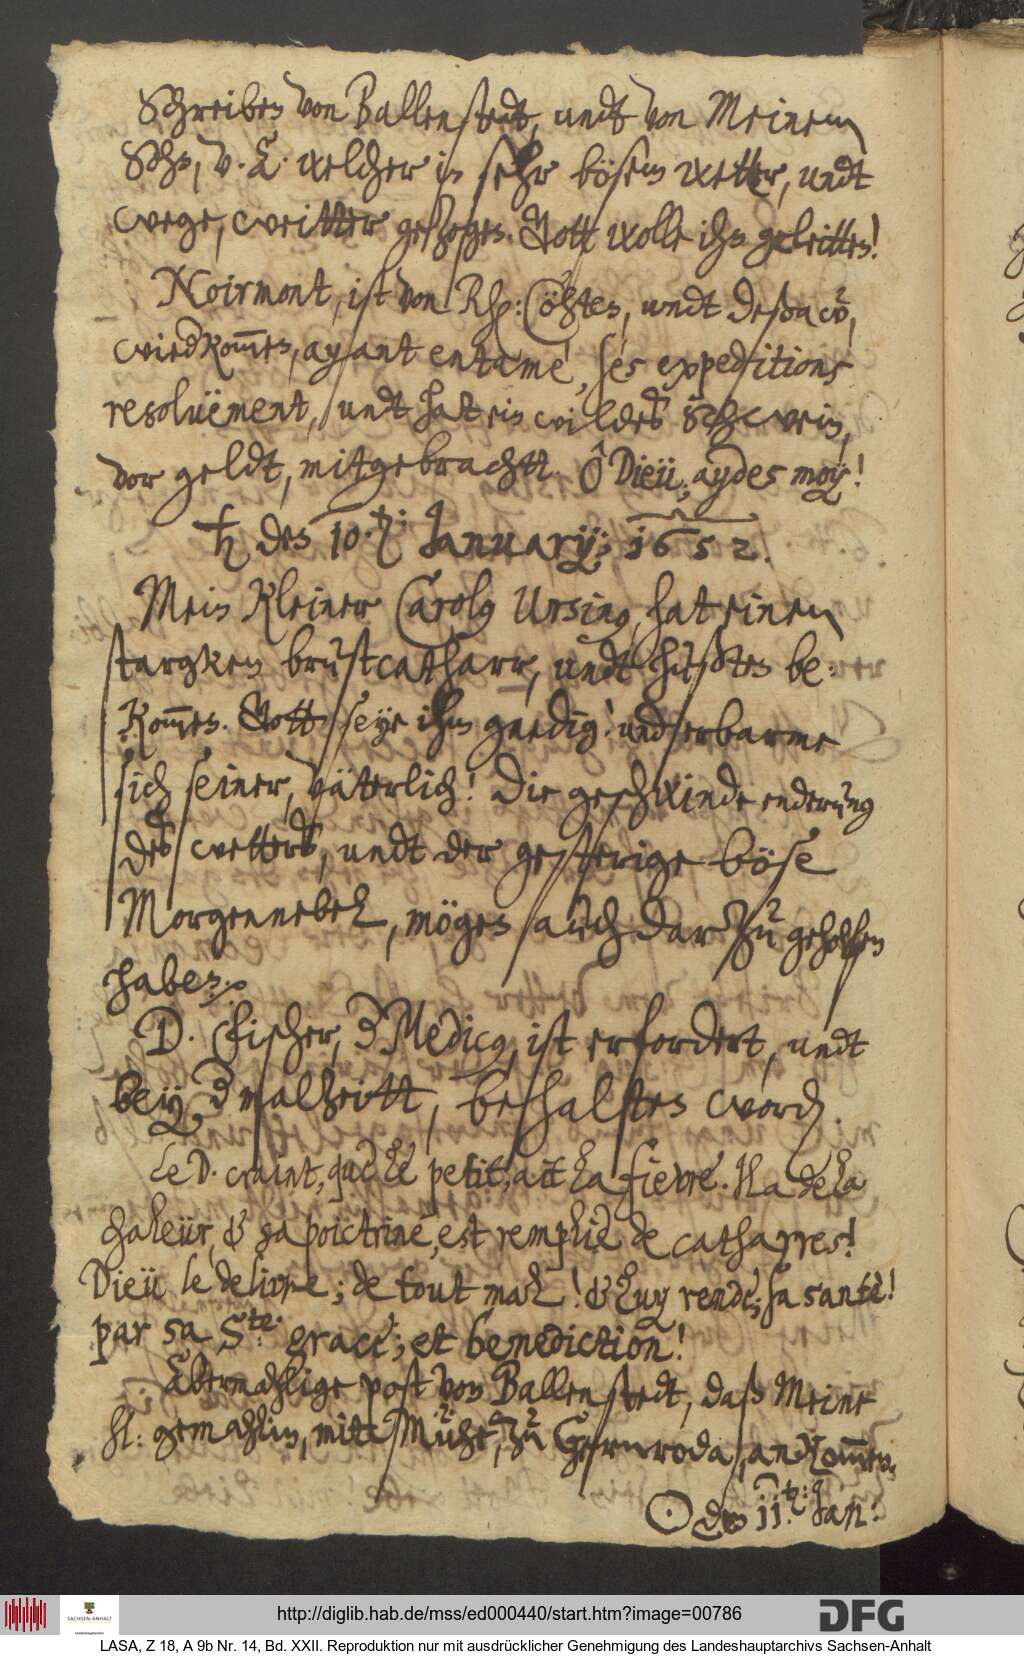 Schreiben von Ballenstedt, undt von Meinem
Sohn, V. L. welcher in sehr bösem wetter, undt
wege, weitter gezogen. Gott wolle ihn geleitten!
Noirmont, ist von Rhp: Cöhten, undt Deßaw,
wiedkom̅en, ayant entamè, ses expeditions
resoluëment, undt hat ein wildes Schwein,
vor geldt, mitgebracht. Ô Dieü, aydes moy!
♄ den 10.t: January; 1652.
Mein kleiner Carolus Ursinus, hat einen
starcken brustcatharr, undt hußten be-
kom̅en. Gott seye ihm gnedig! und erbarme
sich seiner, väterlich! Die geschwinde enderung
des wetters, undt der gesterige böse
Morgennebel, mögen auch darzu geholfen
haben.
D. Fischer, Medicus, ist erfordert, undt
bey malzeitt, behalten word.
Le D. craint, què lè petit, ait la fievre. Il a de la
chaleür, & sa poictrine, est remplie de catharres!
Dieü le delivre; de tout mal! & luy rende; sa santè!
par sa Ste. grace; et benediction!
Abermahlige post von Ballenstedt, daß Meine
hl: gemahlin, mitt Mühe, zu Gernroda, ankom̅en.
☉ den 11.t: Jan:
http://diglib.hab.de/mss/ed000440/start.htm?image=00786
SACHSEN-ANHALT
DFG
LASA, Z 18, A 9b Nr. 14, Bd. XXII. Reproduktion nur mit ausdrücklicher Genehmigung des Landeshauptarchivs Sachsen-Anhalt